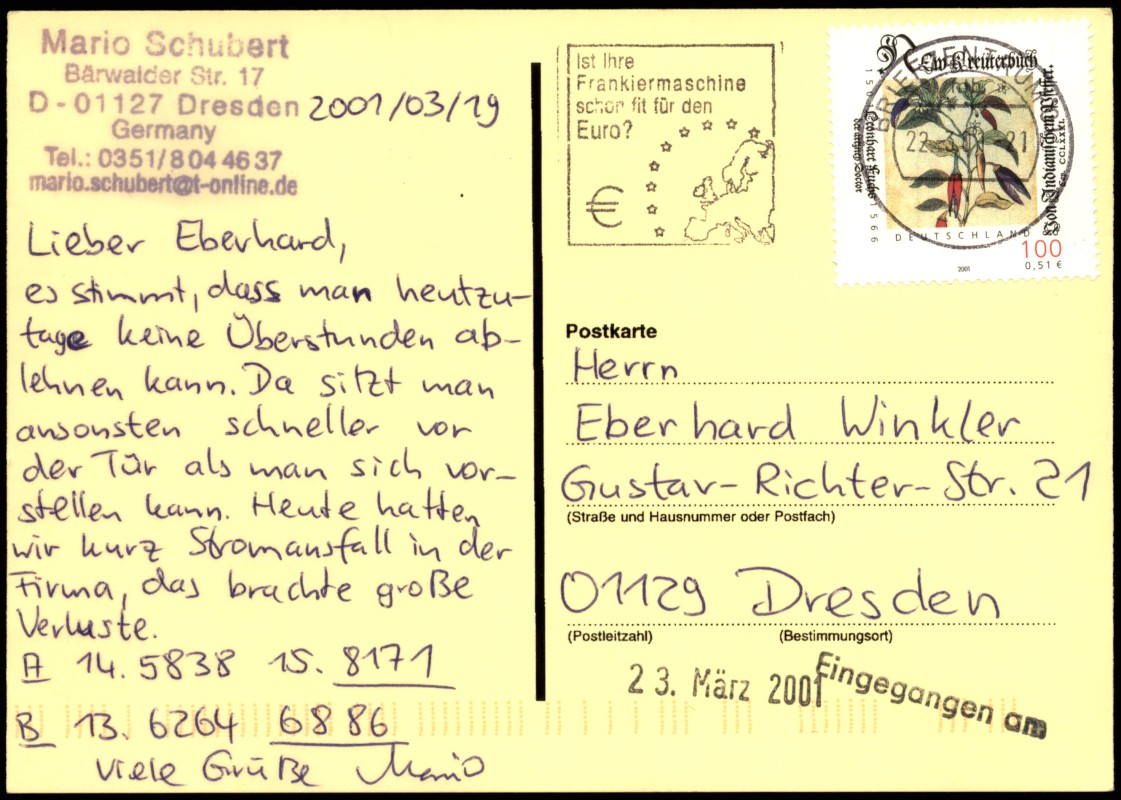 Mario Schubert
Bärwalder Str. 17
D-01127 Dresden
Germany
Tel.: 0351/8 04 46 37
mario.schubert@t-online.de
2001/03/19
Lieber Eberhard,
es stimmt, dass man heutzu-
tage keine Überstunden ab-
lehnen kann. Da sitzt man
ansonsten schneller vor
der Tür als man sich vor-
stellen kann. Heute hatten
wir kurz Stromausfall in der
Firma, das brachte große
Verluste.
A 14. 5838 15. 8171
B 13. 6264 6886
Viele Grüße Mario
Ist Ihre
Frankiermaschine
schon fit für den
Euro?
€
Ein Kreuterbuch
Von Indianischem Pfeffer.
DEUTSCHLAND
100
0,51 €
2001
BRIEFZENTRUM
21
Postkarte
Herrn
Eberhard Winkler
Gustav-Richter-Str. 21
(Straße und Hausnummer oder Postfach)
01129 Dresden
(Postleitzahl) (Bestimmungsort)
23. März 2001
Eingegangen am